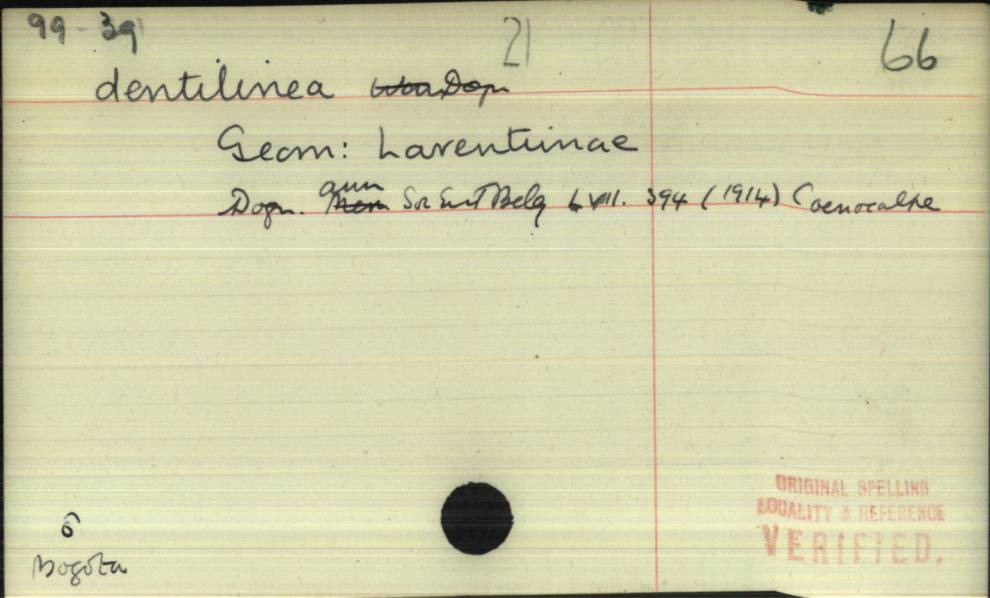 99-39
21
66
dentilinea Dogn
Geom: Larentiinae
Dogn. ann Soc Ent Belg LVIII. 394 (1914) Coenocalpe
ORIGINAL SPELLING
LOCALITY & REFERENCE
VERIFIED.
Bogota